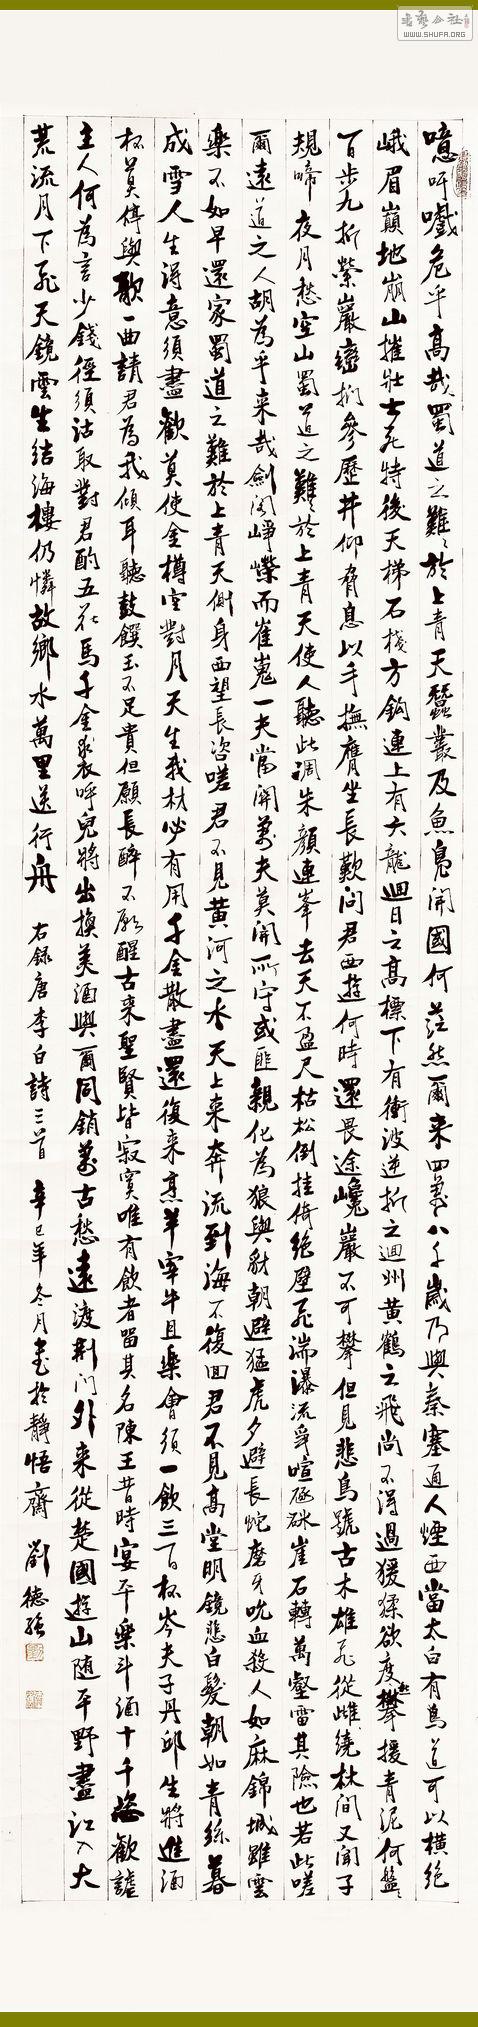 噫吁嚱危乎高哉蜀道之難難於上青天蠶叢及魚鳧開國何茫然爾来四萬八千歲乃與秦塞通人煙西當太白有鳥道可以橫絕
峨眉巔地崩山摧壯士死特後天梯石棧方鈎連上有六龍迴日之高標下有衝波逆折之迴川黃鶴之飛尚不得過猨猱欲度愁攀援青泥何盤盤
百步九折縈巖巒捫參歷井仰脅息以手撫膺坐長歎问君西遊何時還畏途巉巖不可攀但見悲鳥號古木雄飛從雌繞林間又聞子
規啼夜月愁空山蜀道之難難於上青天使人聽此凋朱顏連峯去天不盈尺枯松倒挂倚絕壁飛湍瀑流爭喧豗砯崖石轉萬壑雷其險也若此嗟
爾遠道之人胡為乎来哉劍閣崢嶸而崔嵬一夫當関萬夫莫開所守或匪親化為狼與豺朝避猛虎夕避長蛇磨牙吮血殺人如麻錦城雖雲
樂不如早還家蜀道之難於上青天側身西望長咨嗟君不見黄河之水天上来奔流到海不復回君不見高堂明鏡悲白髮朝如青絲暮
成雪人生得意須盡歡莫使金樽空對月天生我材必有用千金散盡還復来烹羊宰牛且樂會須一飲三百杯岑夫子丹邱生將進酒
杯莫停與歌一曲請君為我傾耳聽鼓饌玉不足貴但願長醉不願醒古来聖賢皆寂寞唯有飲者留其名陳王昔時宴平樂斗酒十千恣歡謔
主人何為言少錢徑須沽取對君酌五花馬千金裘呼兒將出換美酒與爾同銷萬古愁遠渡荆门外来從楚國遊山随平野盡江入大
荒流月下飛天鏡雲生結海樓仍憐故鄉水萬里送行舟 右錄唐李白詩三首 辛巳年冬月書於靜悟齋 劉德強
書藝公社
WWW.SHUFA.ORG